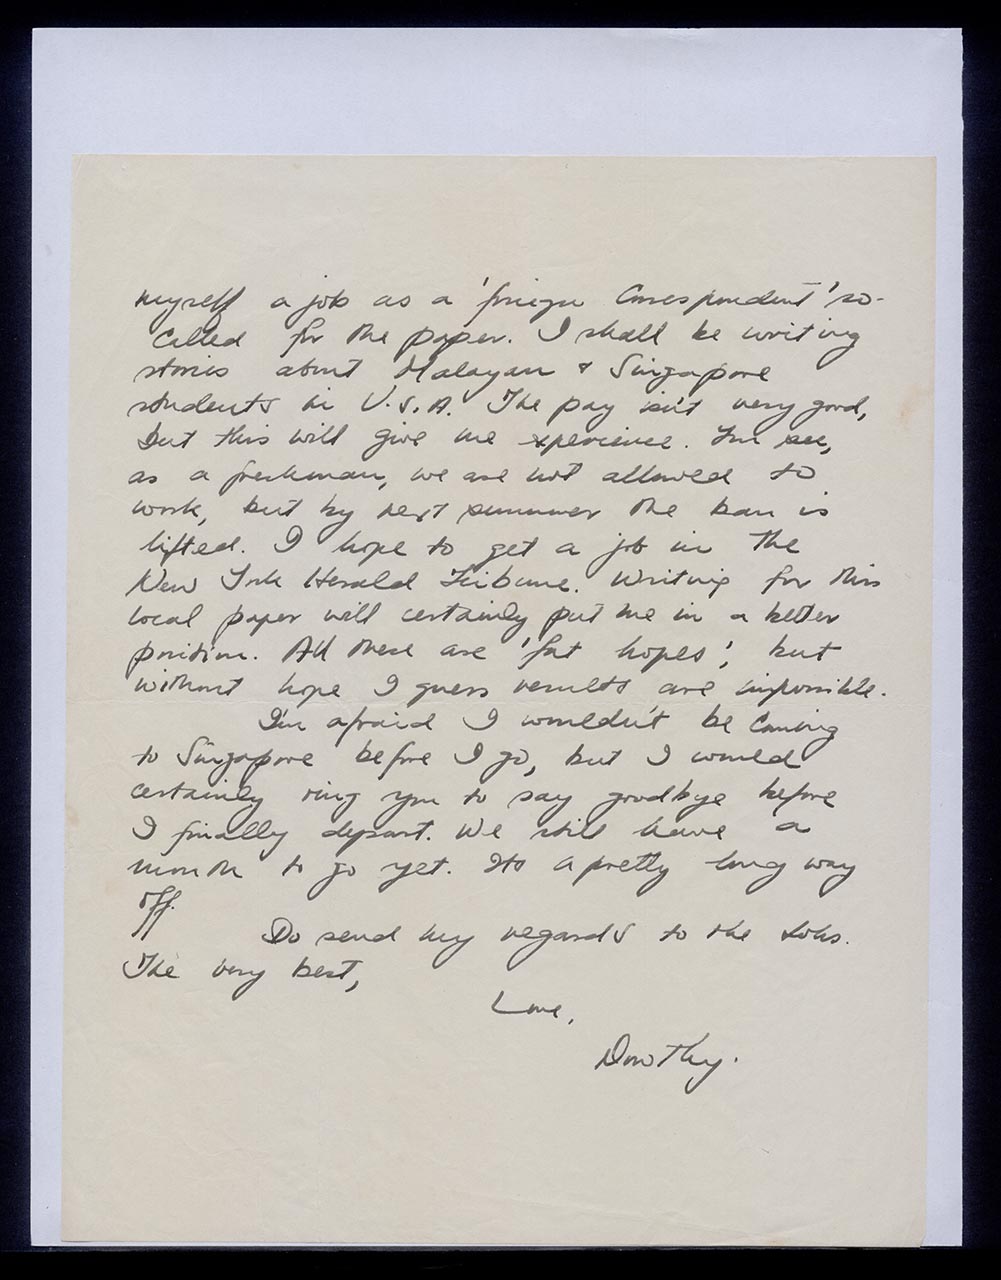 myself a job as a 'foreign Correspondent' so-
called for the paper. I shall be writing
stories about Malayan & Singapore
students in U.S.A. The pay isn't very good,
but this will give me xperience. You see,
as a freshman, we are not allowed to
work, but by next summer the ban is
lifted. I hope to get a job in the
New York Herald Tribune. Writing for this
local paper will certainly put me in a better
position. All these are 'fat hopes', but
without hope I guess results are impossible.
I'm afraid I wouldn't be coming
to Singapore before I go, but I would
certainly ring you to say goodbye before
I finally depart. We still have a
month to go yet. Its a pretty long way
off.
Do send my regards to the
The very best,
Love,
Dorothy.